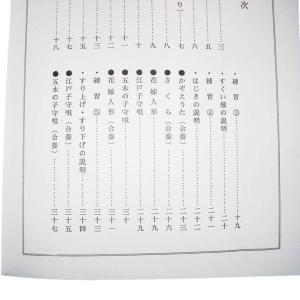 次
五
六
り)…七
八
九
十
十一
十二
十三
十五
十七
十八
・練習③……十九
・すくい撥の説明……二十
・練習④……二十一
・はじきの説明……二十四
●かぞえうた(合奏)
●さくら(合奏)……二十六
●花嫁人形
●江戸子守唄……二十九
●五木の子守唄……三十
●花嫁人形(合奏)……三十一
・練習⑤……三十三
・すり上げ・すり下げの説明……三十四
●江戸子守唄(合奏)……三十五
●五木の子守唄(合奏)……三十七